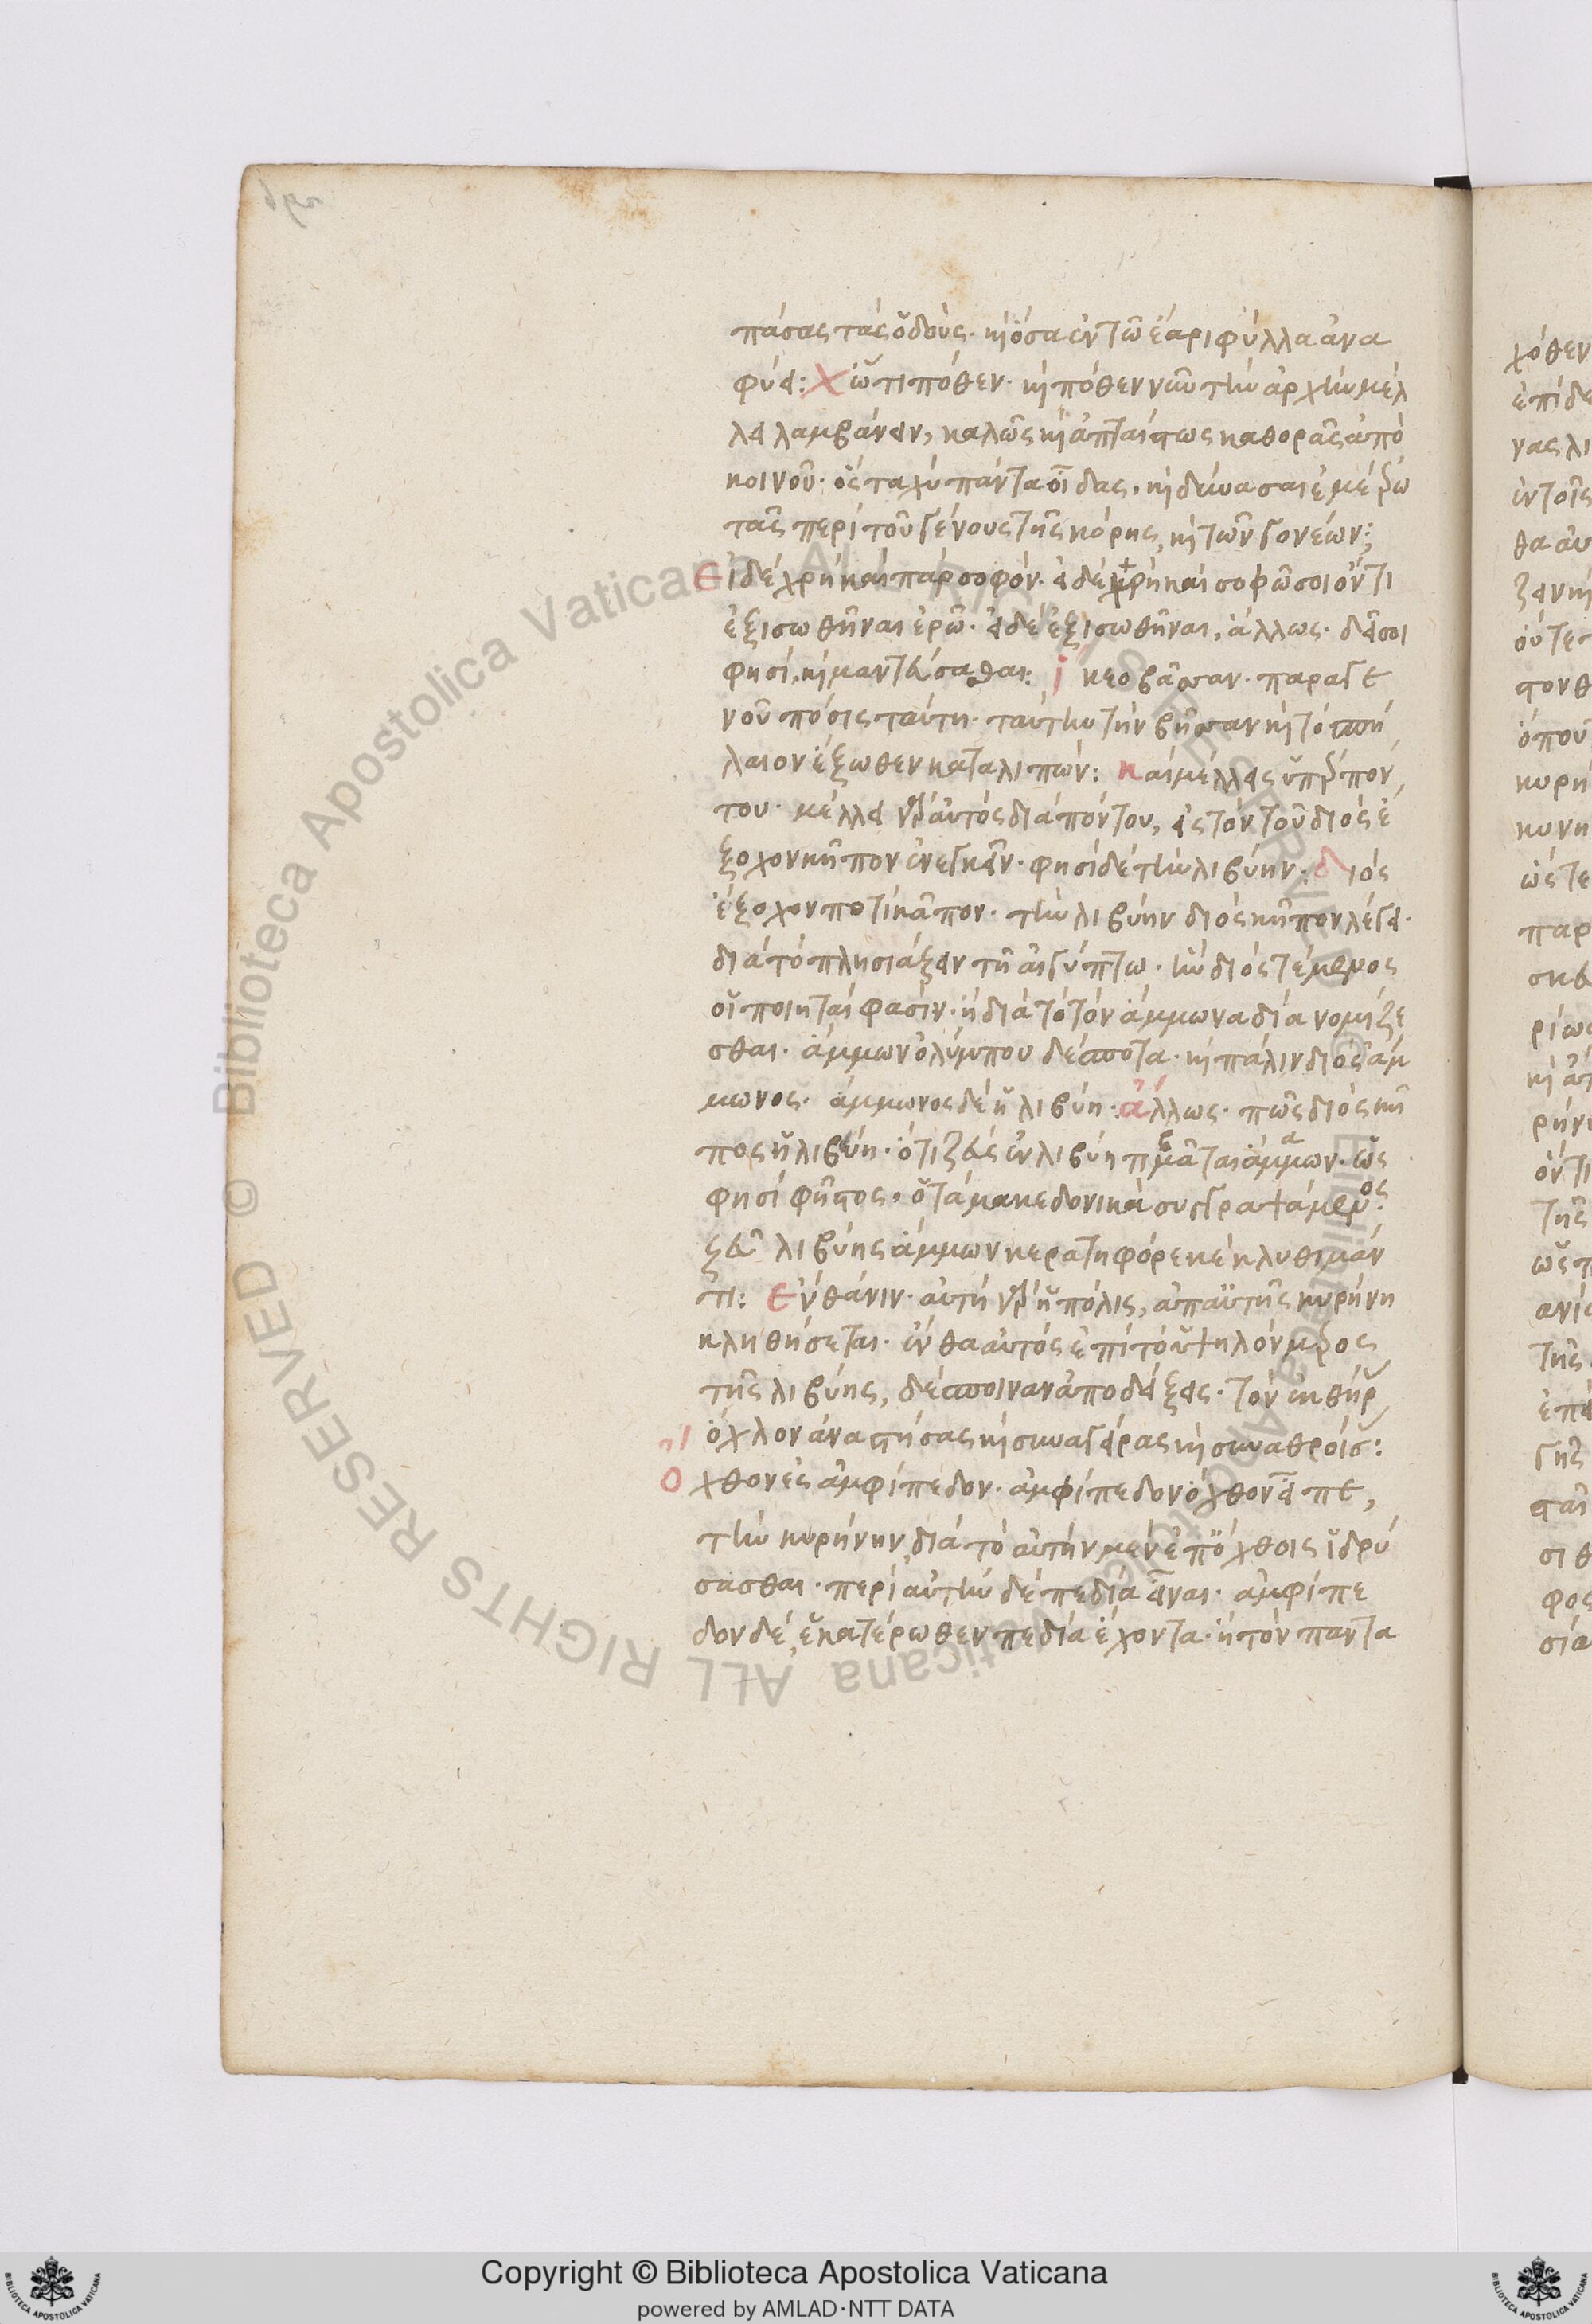 πάσας τὰς ὁδούς· κὶ ὅσα ἐν τῶ ἔαρι φύλλα ἀνα
φύει: Χὤτι πόθεν· κὶ πόθεν νῦν τὴν ἀρχὴν μέλ
λει λαμβάνειν, καλῶς κὶ ἀπταίστως καθορᾶς ἀπὸ
κοινοῦ· ὃς ταχὺ πάντα οἶδας, κὶ δύνασαι ἐμὲ ἐρω
τᾶς περὶ τοῦ γένους τῆς κόρης, κὶ τῶν γονέων:
Εἰ δὲ χρὴ καὶ πὰρ σοφόν· εἰ δὲ χρὴ καὶ σοφῶ σοι ὄντι
ἐξισωθῆναι ἐρῶ· εἰ δὲ ἐξισωθῆναι, ἄλλως· δεῖ σοι
φησί, κὶ μαντεύσασθαι: ἵκεο βᾶσσαν· παραγε
νοῦ πόσις ταύτη· ταύτην τὴν βῆσσαν κὶ τὸ σπή
λαιον ἔξωθεν καταλιπών: καὶ μέλλεις ὑπὲρ πόν
του· μέλλει γὰρ αὐτὸς διὰ πόντου, εἰς τὸν τοῦ διὸς ἔ
ξοχον κῆπον ἐνεγκεῖν· φησὶ δὲ τὴν λιβύην: διὸς
ἔξοχον ποτὶ κᾶπον· τὴν λιβύην διὸς κῆπον λέγει·
διὰ τὸ πλησιάζειν τῆ αἰγύπτω· ἣν διὸς τέμενος
οἱ ποιηταί φασίν· ἢ διὰ τὸ τὸν ἄμμωνα δία νομίζε
σθαι· ἄμμων ὀλύμπου δέσποτα· κὶ πάλιν διὸς ἄμ
μωνος· ἄμμωνος δὲ ἡ λιβύη: ἄλλως· πῶς διὸς κῆ
πος ἡ λιβύη· ὅτι ζεὺς ἐν λιβύη τιμᾶται ἄμμων· ὥς
φησί φῆστος· ὁ τὰ μακεδονικὰ συγγραψάμενος·
ζεῦ λιβύης ἄμμων κερατηφόρε κέκλυθι μάν
τι: Ἔνθά νιν· αὐτὴ γὰρ ἡ πόλις, ἀπ αὐτῆς κυρήνη
κληθήσεται· ἔνθα αὐτὸς ἐπὶ τὸ ὑψηλὸν μέρος
τῆς λιβύης, δέσποιναν ἀποδείξεις· τὸν ἐκ θήρ
ὄχλον ἀναστήσας κὶ συναγείρας κὶ συναθροίσ:
Ὄχθον ἐς ἀμφίπεδον· ἀμφίπεδον ὄχθον εἶπε,
τὴν κυρήνην διὰ τὸ αὐτὴν μὲν ἐπ ὄχθοις ἱδρύ
σασθαι· περὶ αὐτὴν δὲ πεδία εἶναι· ἀμφίπε
δον δέ, ἑκατέρωθεν πεδία ἔχοντα· ἢ τὸν παντα